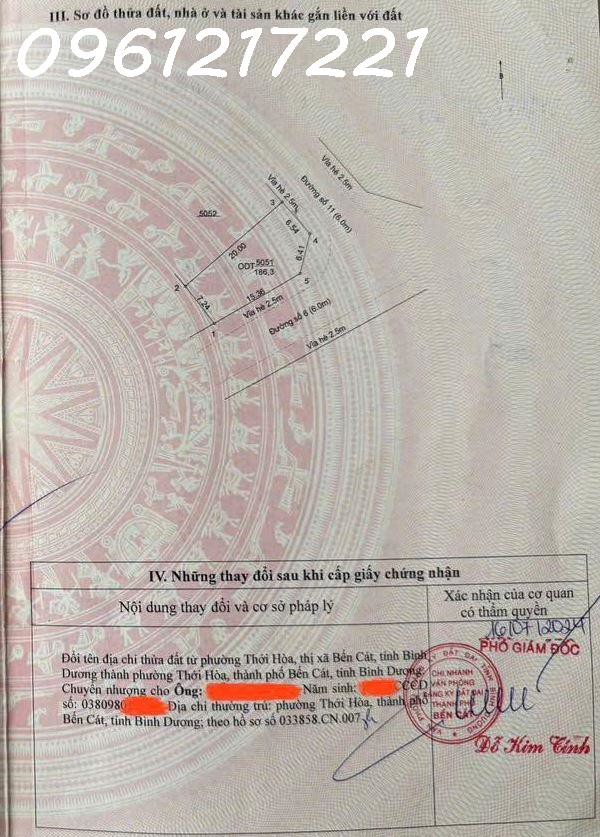 III. Sơ đồ thửa đất, nhà ở và tài sản khác gắn liền với đất
0961217221
B
Vỉa hè 2.5m
Đường số 11 (6.0m)
Vỉa hè 2.5m
3
5052
6.54
4
20.00
6.41
ODT 5051
186,3
2
5
7.24
15.36
Vỉa hè 2.5m
1
Đường số 6 (6.0m)
Vỉa hè 2.5m
IV. Những thay đổi sau khi cấp giấy chứng nhận
Nội dung thay đổi và cơ sở pháp lý
Xác nhận của cơ quan
có thẩm quyền
16/07/2024
PHÓ GIÁM ĐỐC
Đổi tên địa chỉ thửa đất từ phường Thới Hòa, thị xã Bến Cát, tỉnh Bình
Dương thành phường Thới Hòa, thành phố Bến Cát, tỉnh Bình Dương;
Chuyển nhượng cho Ông: Năm sinh: CCCD
số: 0380980 Địa chỉ thường trú: phường Thới Hòa, thành phố
Bến Cát, tỉnh Bình Dương; theo hồ sơ số 033858.CN.007
CHI NHÁNH
VĂN PHÒNG
ĐĂNG KÝ ĐẤT ĐAI
THÀNH PHỐ
BẾN CÁT
Đỗ Kim Tính